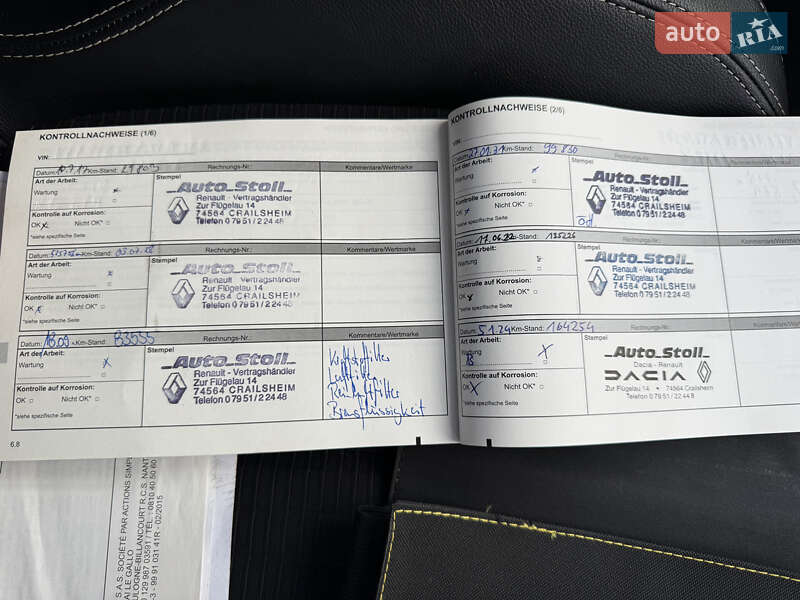 auto RIA
KONTROLLNACHWEISE (1/6)
VIN:
Datum: Km-Stand: Rechnungs-Nr.: Kommentare/Wertmarke
Art der Arbeit: Stempel
Wartung x
Kontrolle auf Korrosion:
OK x Nicht OK*
*siehe spezifische Seite
Auto Stoll
Renault - Vertragshändler
Zur Flügelau 14
74564 CRAILSHEIM
Telefon 0 79 51 / 2 24 48
Datum: Km-Stand: 03.07.18 Rechnungs-Nr.: Kommentare/Wertmarke
Art der Arbeit: Stempel
Wartung x
Kontrolle auf Korrosion:
OK x Nicht OK*
*siehe spezifische Seite
Auto Stoll
Renault - Vertragshändler
Zur Flügelau 14
74564 CRAILSHEIM
Telefon 0 79 51 / 2 24 48
Datum: 18.09 Km-Stand: 83555 Rechnungs-Nr.: Kommentare/Wertmarke
Art der Arbeit: Stempel
Wartung x
Kontrolle auf Korrosion:
OK Nicht OK*
*siehe spezifische Seite
Auto Stoll
Renault - Vertragshändler
Zur Flügelau 14
74564 CRAILSHEIM
Telefon 0 79 51 / 2 24 48
Kraftstoffilter
Luftfilter
Bremsflüssigkeit
6.8
KONTROLLNACHWEISE (2/6)
VIN:
Datum: 27.01.21 Km-Stand: 99 830 Rechnungs-Nr.: Kommentare/Wertmarke
Art der Arbeit: Stempel
Wartung x
Kontrolle auf Korrosion:
OK x Nicht OK*
*siehe spezifische Seite
Auto Stoll
Renault - Vertragshändler
Zur Flügelau 14
74564 CRAILSHEIM
Telefon 0 79 51 / 2 24 48
Datum: 17.06.22 Km-Stand: 125226 Rechnungs-Nr.: Kommentare/Wertmarke
Art der Arbeit: Stempel
Wartung x
Kontrolle auf Korrosion:
OK x Nicht OK*
*siehe spezifische Seite
Auto Stoll
Renault - Vertragshändler
Zur Flügelau 14
74564 CRAILSHEIM
Telefon 0 79 51 / 2 24 48
Datum: 5.1.24 Km-Stand: 164254 Rechnungs-Nr.: Kommentare/Wertmarke
Art der Arbeit: Stempel
Wartung X
Kontrolle auf Korrosion:
OK X Nicht OK*
*siehe spezifische Seite
Auto Stoll
Dacia - Renault
DACIA
Zur Flügelau 14 • 74564 Crailsheim
Telefon 0 79 51 / 2 24 48
S.A.S. SOCIÉTÉ PAR ACTIONS SIMPL
LE GALLO
ULOGNE-BILLANCOURT R.C.S. NANT
129 987 03591 / TÉL. : 0810 40 50 60
99 91 031 41R - 02/2015